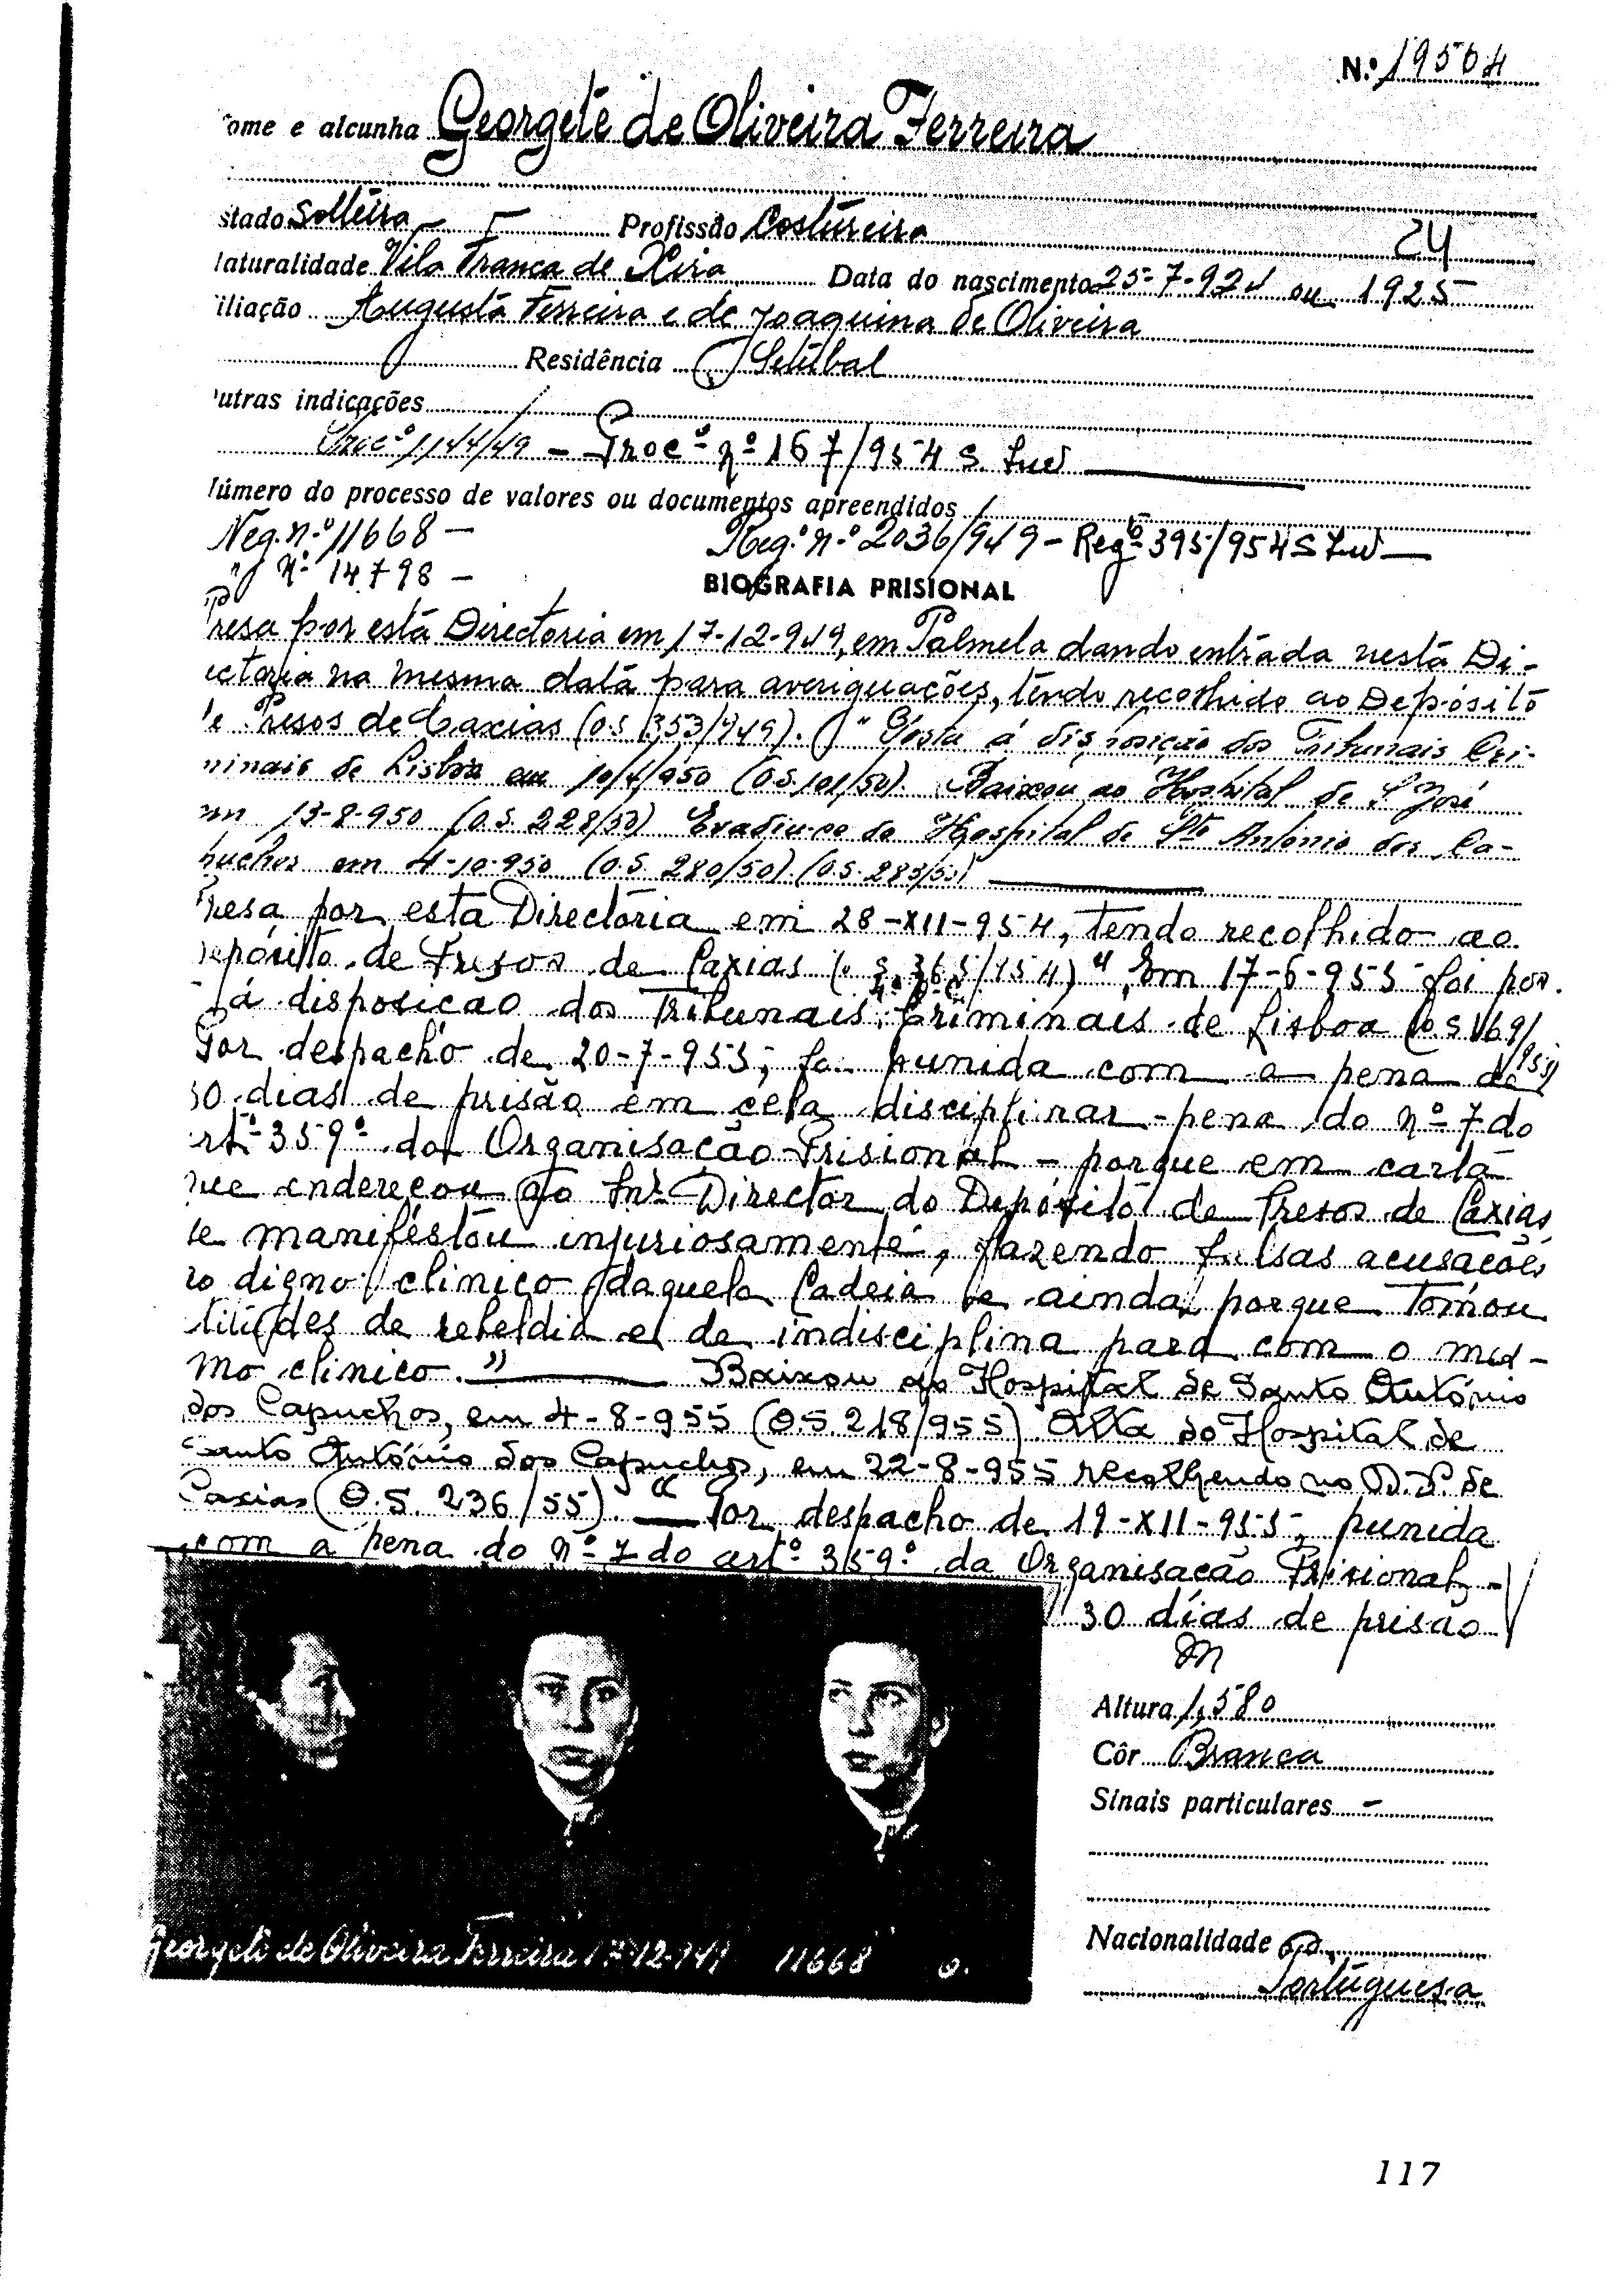 N.º 19504
ome e alcunha Georgete de Oliveira Ferreira
stado Solteira Profissão Costureira
24
aturalidade Vila Franca de Xira Data do nascimento 25-7-924 ou 1925
iliação Augusto Ferreira e de Joaquina de Oliveira
Residência Setúbal
utras indicações
Procº 1144/49 - Procº nº 167/954 S.
úmero do processo de valores ou documentos apreendidos
Neg. n.º 11668 - Reg.º n.º 2036/949 - Regº 395/954 S
" nº 14798 -
BIOGRAFIA PRISIONAL
resa por esta Directoria em 17-12-949, em Palmela dando entrada nesta Di-
ectoria na mesma data para averiguações, tendo recolhido ao Depósito
e Presos de Caxias (O.S. 353/949). " Posta á disposição dos Tribunais Cri-
minais de Lisboa em 10/4/950 (O.S. 101/50). Baixou ao Hospital de S. José
em 13-8-950 (O.S. 228/50) Evadiu-se do Hospital de Stº António dos Ca-
puchos em 4-10-950 (O.S. 280/50). (O.S. 283/50)
Presa por esta Directoria em 28-XII-954, tendo recolhido ao
epósito de Presos de Caxias (O.S. 363/954) " Em 17-6-955 foi pos.
á disposicao dos Tribunais Criminais de Lisboa (O.S. 169/
955)
Por despacho de 20-7-955, foi punida com a pena de
30 dias de prisão em cela disciplinar - pena do nº 7 do
artº 359º da Organisacão Prisional - porque em carta
que endereçou ao Snr. Director do Depósito de Presos de Caxias
se manifestou injuriosamente, fazendo falsas acusacões
ao digno clinico daquela Cadeia e ainda porque tomou
titudes de rebeldia e de indisciplina para com o mes-
mo clinico." Baixou ao Hospital de Santo António
dos Capuchos, em 4-8-955 (O.S. 218/955). Alta do Hospital de
Santo António dos Capuchos, em 22-8-955 recolhendo no D.P. de
Caxias (O.S. 236/55). " Por despacho de 19-XII-955, punida
com a pena do nº 7 do artº 359º da Organisacão Prisional -
30 dias de prisao
Altura 1,580
Côr Branca
Sinais particulares -
Nacionalidade
Portuguesa
Georgete de Oliveira Ferreira 17-12-949 11668
117